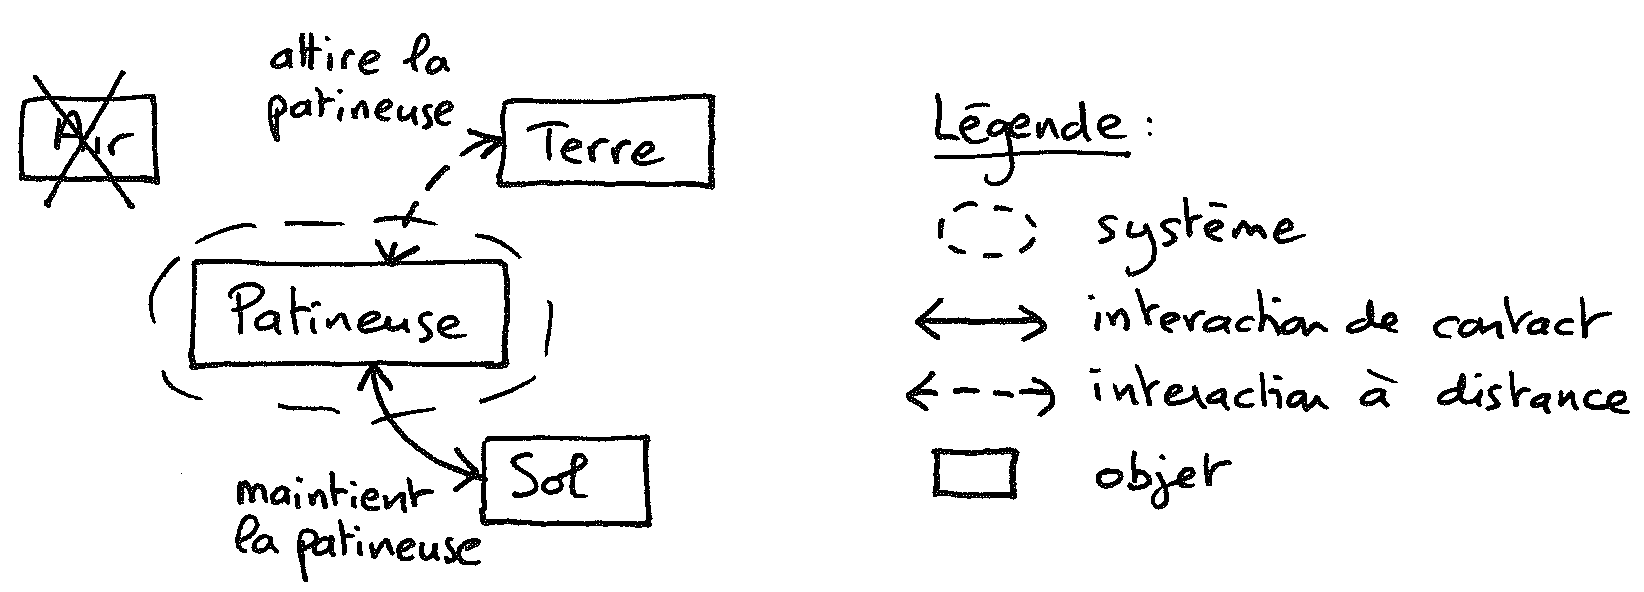 attire la
patineuse
Air
Terre
Patineuse
Sol
maintient
la patineuse
Légende :
système
interaction de contact
interaction à distance
objet